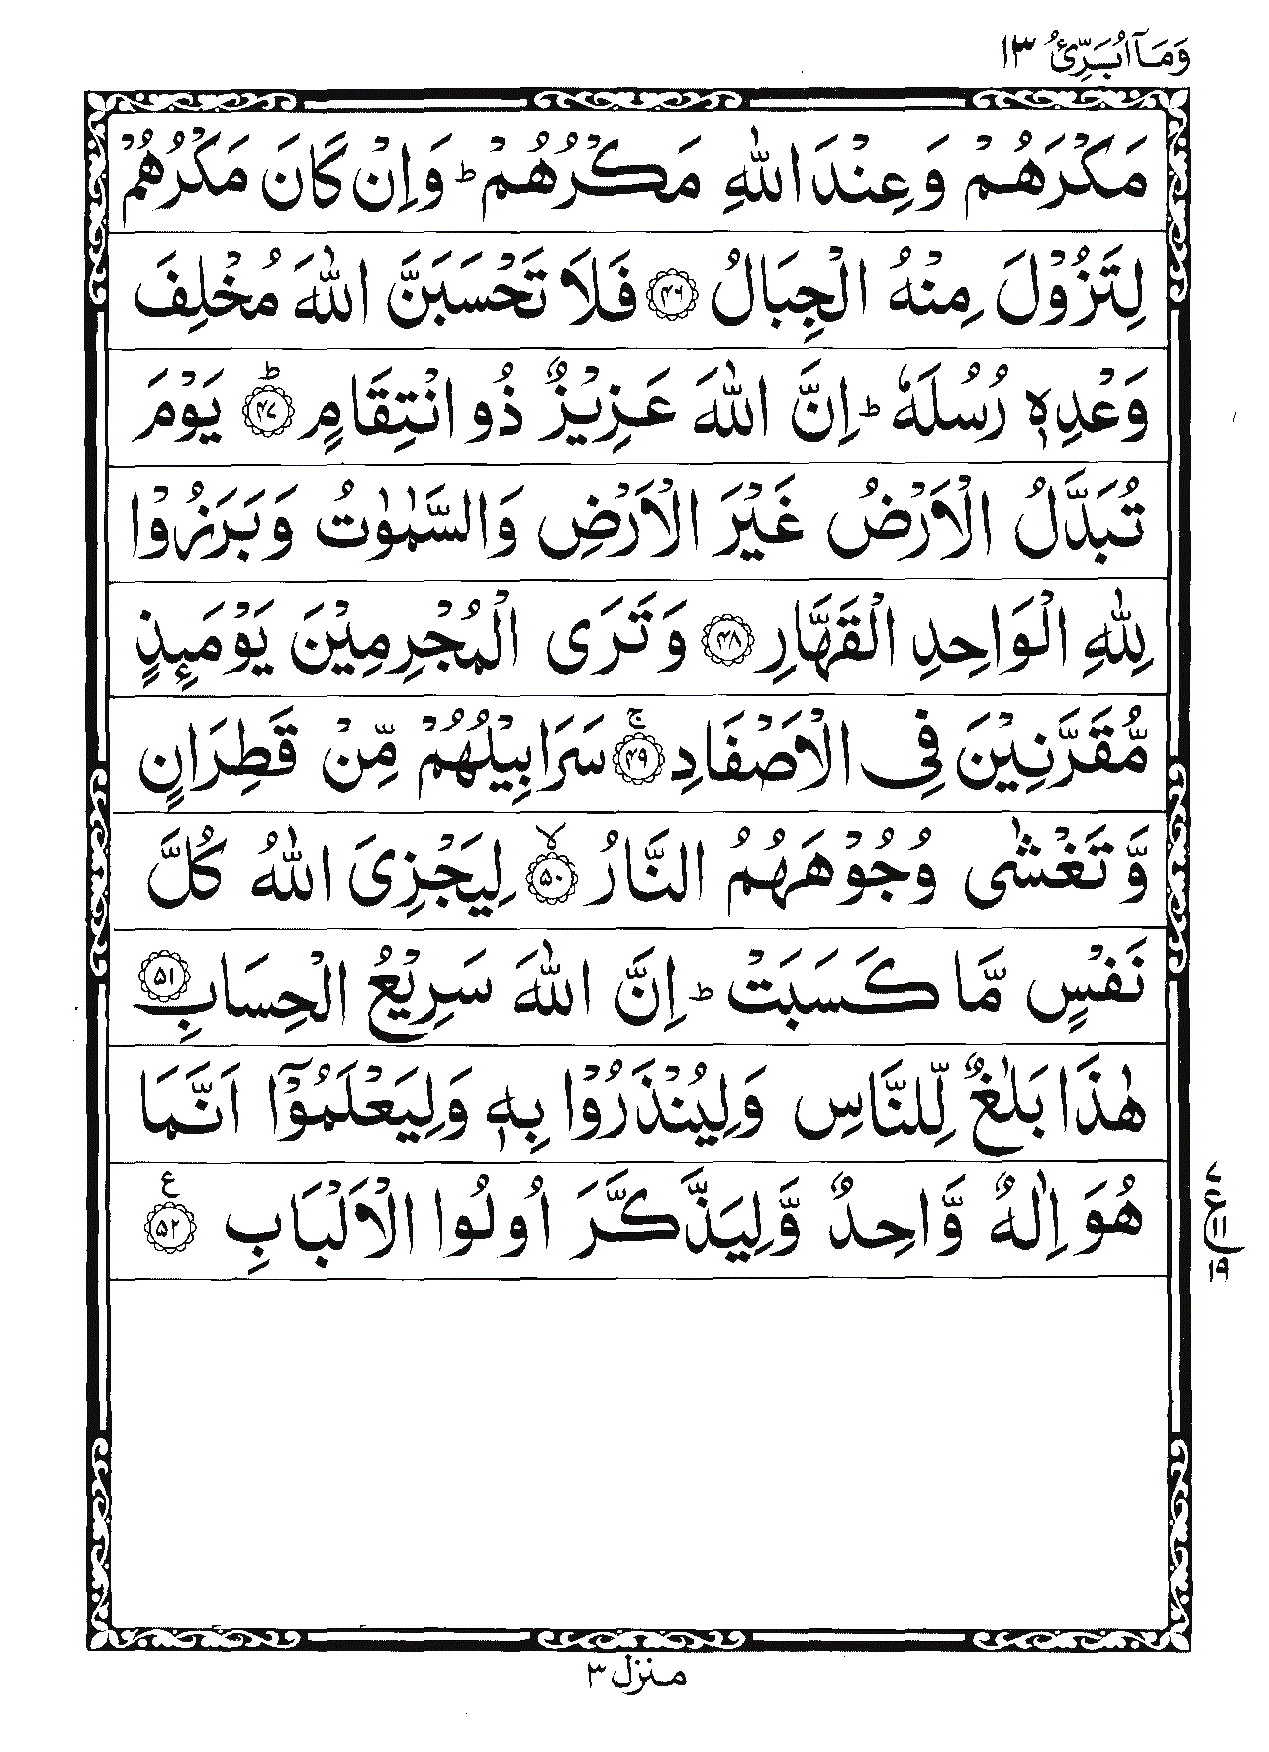 وَمَآ اُبَرِّئُ ١٣
مَكْرَهُمْ وَعِنْدَ اللّٰهِ مَكْرُهُمْ ؕ وَاِنْ كَانَ مَكْرُهُمْ
لِتَزُوْلَ مِنْهُ الْجِبَالُ ﴿٤٦﴾ فَلَا تَحْسَبَنَّ اللّٰهَ مُخْلِفَ
وَعْدِهٖ رُسُلَهٗ ؕ اِنَّ اللّٰهَ عَزِيْزٌ ذُو انْتِقَامٍ ؕ﴿٤٧﴾ يَوْمَ
تُبَدَّلُ الْاَرْضُ غَيْرَ الْاَرْضِ وَالسَّمٰوٰتُ وَبَرَزُوْا
لِلّٰهِ الْوَاحِدِ الْقَهَّارِ ﴿٤٨﴾ وَتَرَى الْمُجْرِمِيْنَ يَوْمَئِذٍ
مُّقَرَّنِيْنَ فِى الْاَصْفَادِ ۚ﴿٤٩﴾ سَرَابِيْلُهُمْ مِّنْ قَطِرَانٍ
وَّتَغْشٰى وُجُوْهَهُمُ النَّارُ ۙ﴿٥٠﴾ لِيَجْزِىَ اللّٰهُ كُلَّ
نَفْسٍ مَّا كَسَبَتْ ؕ اِنَّ اللّٰهَ سَرِيْعُ الْحِسَابِ ﴿٥١﴾
هٰذَا بَلٰغٌ لِّلنَّاسِ وَلِيُنْذَرُوْا بِهٖ وَلِيَعْلَمُوْٓا اَنَّمَا
هُوَ اِلٰهٌ وَّاحِدٌ وَّلِيَذَّكَّرَ اُولُوا الْاَلْبَابِ ﴿٥٢﴾ ع
٧
ع
١١
١٩
منزل ٣